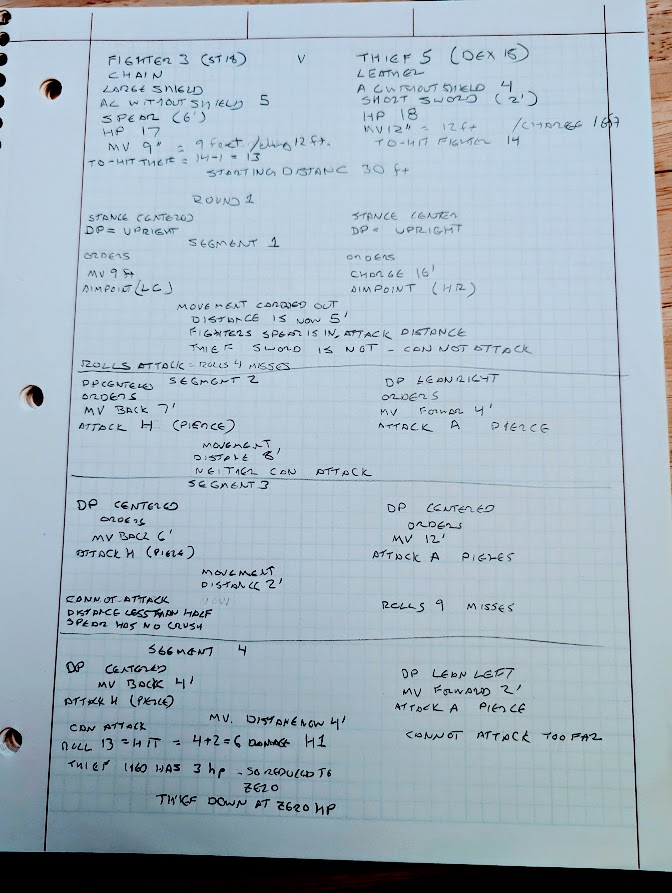 FIGHTER 3 (ST18) V THIEF 5 (DEX 18)
CHAIN LEATHER
LARGE SHIELD AC WITHOUT SHIELD 4
AC WITHOUT SHIELD 5 SHORT SWORD (2')
SPEAR (6') HP 18
HP 17 MV 12" = 12 ft /CHARGE 16
MV 9" = 9 feet / 12 ft. TO-HIT FIGHTER 14
TO-HIT THIEF = 14-1 = 13
STARTING DISTANC 30 ft
ROUND 1
STANCE CENTERED STANCE CENTER
DP = UPRIGHT DP = UPRIGHT
SEGMENT 1
ORDERS ORDERS
MV 9 ft CHARGE 16'
AIMPOINT (LC) AIMPOINT (HR)
MOVEMENT CARRIED OUT
DISTANCE IS NOW 5'
FIGHTERS SPEAR IS IN ATTACK DISTANCE
THIEF SWORD IS NOT - CAN NOT ATTACK
ROLLS ATTACK = ROLLS 4 MISSES
DP CENTERED SEGMENT 2 DP LEAN RIGHT
ORDERS ORDERS
MV BACK 7' MV FORWAR 4'
ATTACK H (PIERCE) ATTACK A PIERCE
MOVEMENT
DISTANE 8'
NEITHER CAN ATTACK
SEGMENT 3
DP CENTERED DP CENTERED
ORDERS ORDERS
MV BACK 6' MV 12'
ATTACK H (PIERE) ATTACK A PIERES
MOVEMENT
DISTANCE 2'
CANNOT ATTACK
DISTANCE LESS THAN HALF ROLLS 9 MISSES
SPEAR HAS NO CRUSH
SEGMENT 4
DP CENTERED DP LEAN LEFT
MV BACK 4' MV FORWARD 2'
ATTACK H (PIERCE) ATTACK A PIERCE
CAN ATTACK MV. DISTANE NOW 4' CANNOT ATTACK TOO FAR
ROLL 13 = HIT = 4+2=6 DAMAGE H1
THIEF HAS 3 hp - SO REDUCED TO
ZERO
THIEF DOWN AT ZERO HP